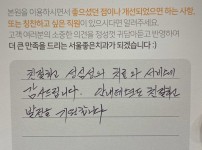 본원을 이용하시면서 좋으셨던 점이나 개선되었으면 하는 사항,
또는 칭찬하고 싶은 직원이 있으시다면 알려주세요.
고객 여러분의 소중한 의견을 정성껏 귀담아듣고 반영하여
더 큰 만족을 드리는 서울좋은치과가 되겠습니다 :)
친절하고 성실성의 치료와 서비스에
감사드립니다. 안내데스크 친절하고
발전을 기원합니다